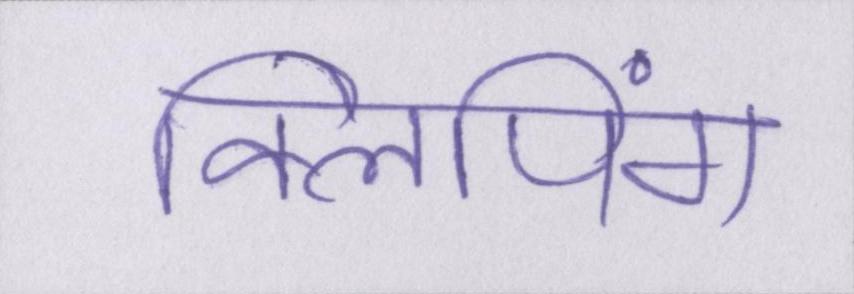 क्लिपिंग